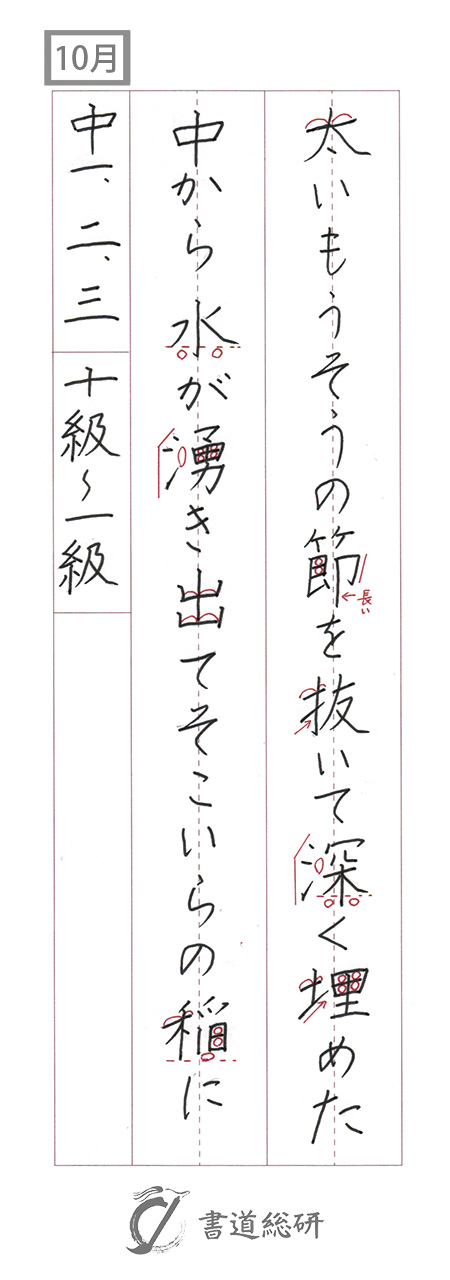 10月
太いもうそうの節を抜いて深く埋めた
長い
中から水が湧き出てそこいらの稲に
中一、二、三 十級〜一級
書道総研